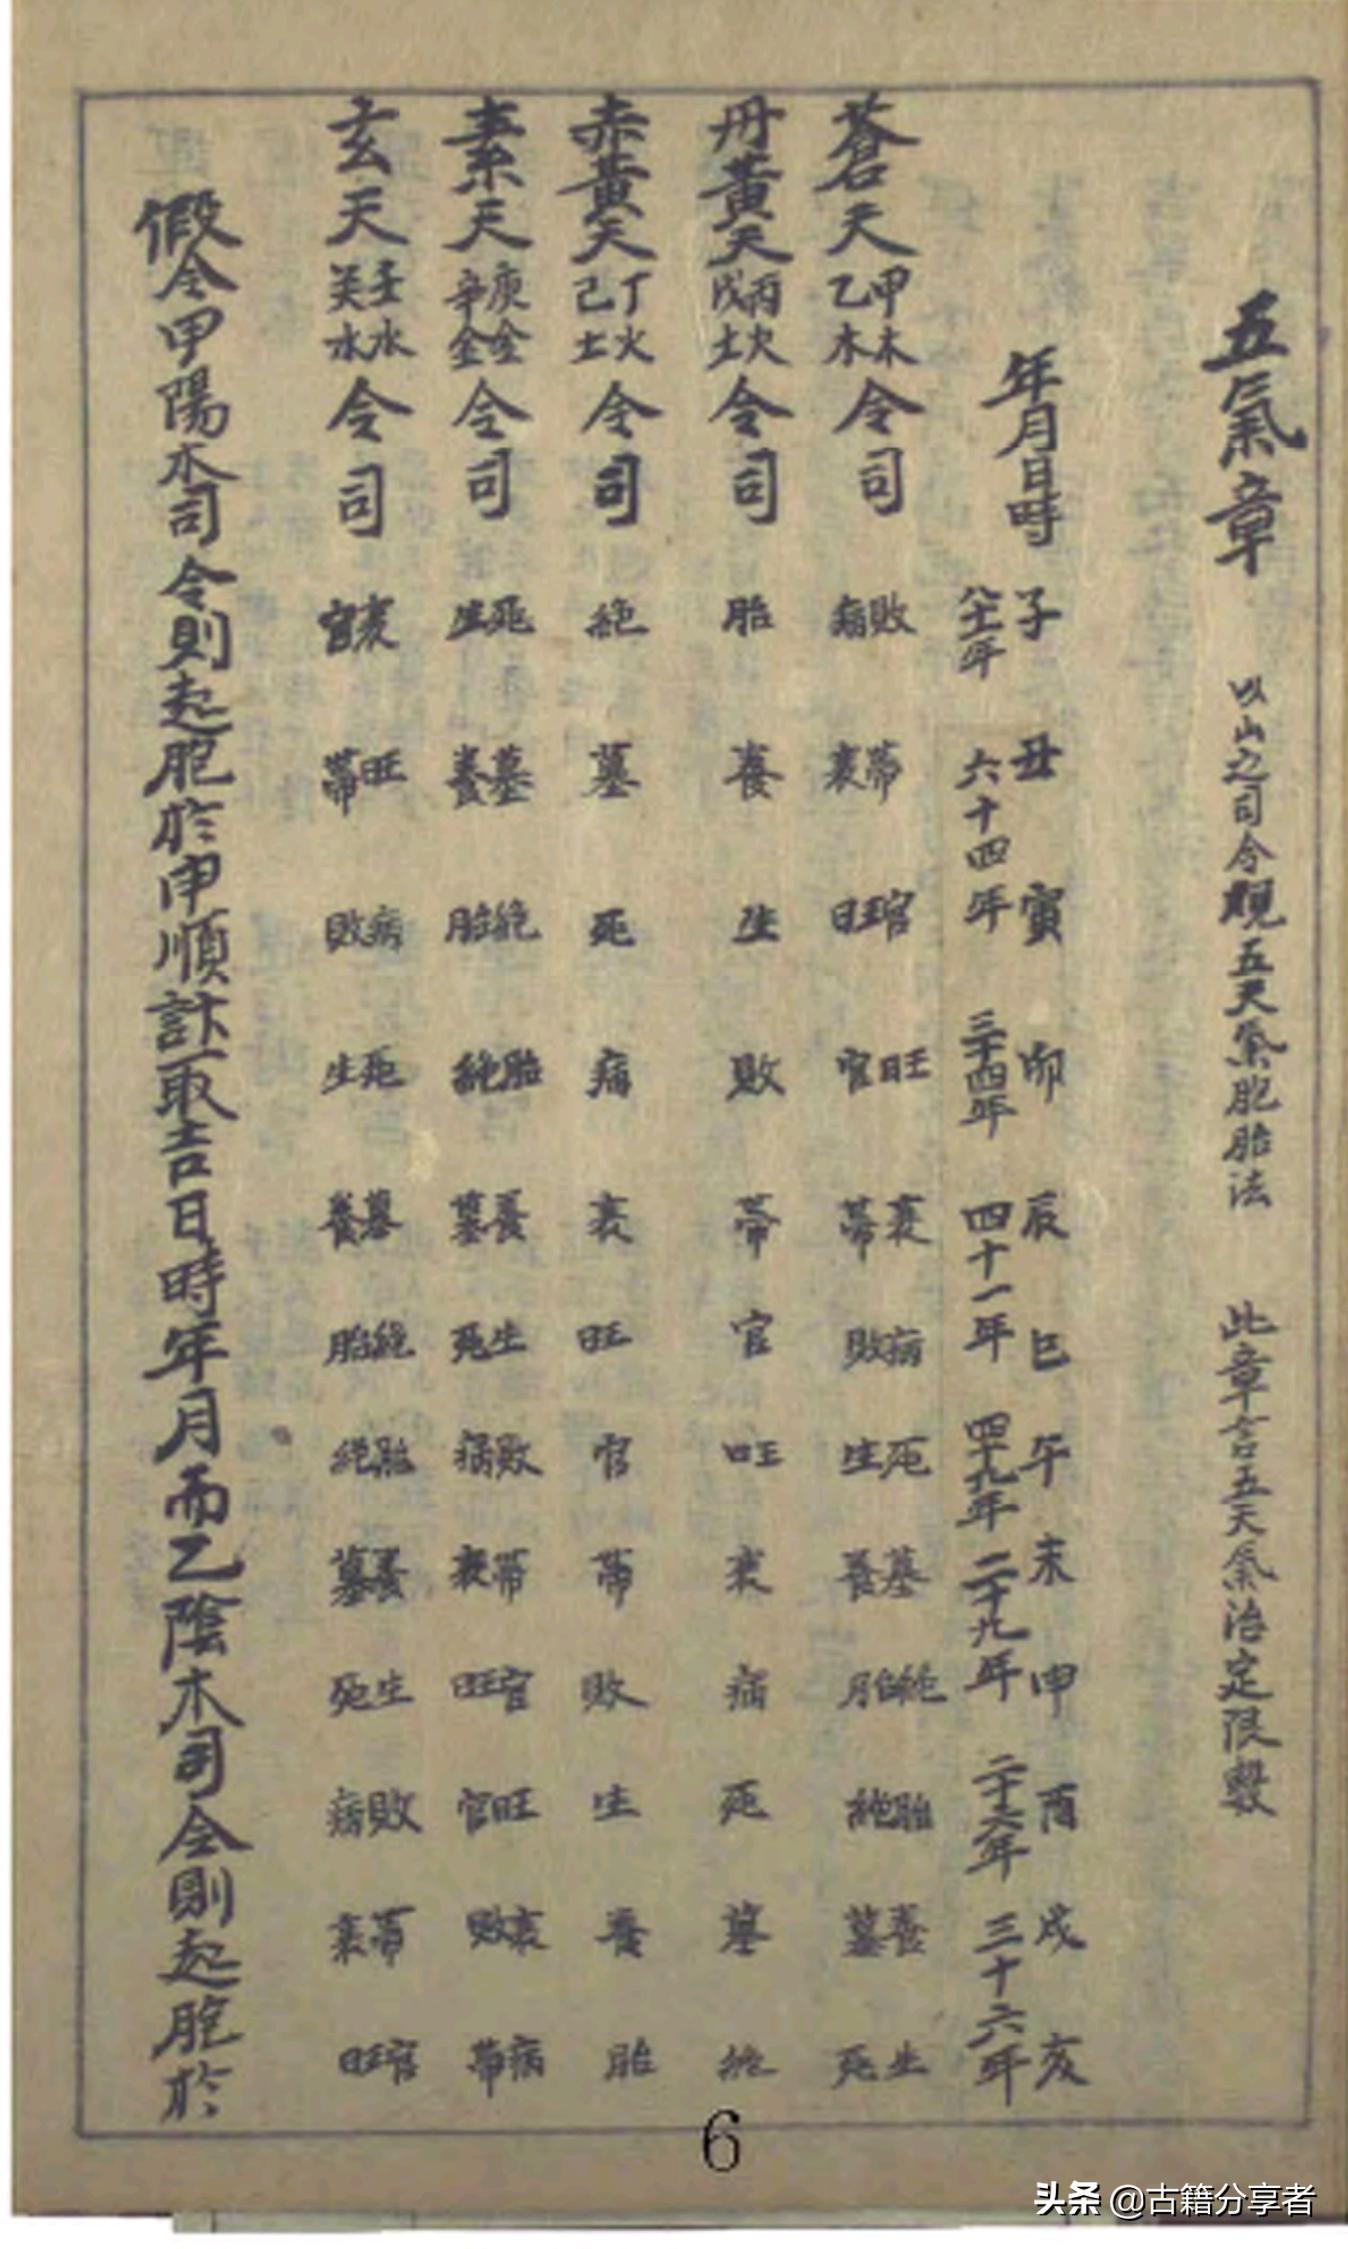 五氣章 以山之司令觀五天氣胞胎法 此章言五天氣治定限數
年月日時 子 丑 寅 卯 辰 巳 午 未 申 酉 戌 亥
六十四年 三十四年 四十一年 四十九年 二十九年 二十六年 三十六年
蒼天 甲木 乙木 令司 敗病 帶衰 官旺 旺官 衰帶 病敗 死生 墓養 絕胎 胎絕 養墓 生死
丹黃天 丙火 戊土 令司 胎 養 生 敗 帶 官 旺 衰 病 死 墓 絕
赤黃天 丁火 己土 令司 絕 墓 死 病 衰 旺 官 帶 敗 生 養 胎
素天 庚金 辛金 令司 死生 墓養 絕胎 胎絕 養墓 生死 敗病 帶衰 官旺 旺官 衰敗 病帶
玄天 壬水 癸水 令司 衰官 旺帶 病敗 死生 墓養 絕胎 胎絕 養墓 生死 敗病 帶衰 官旺
假令甲陽木司令則起胞於申順計取吉日時年月而乙陰木司令則起胞於
6
头条 @古籍分享者